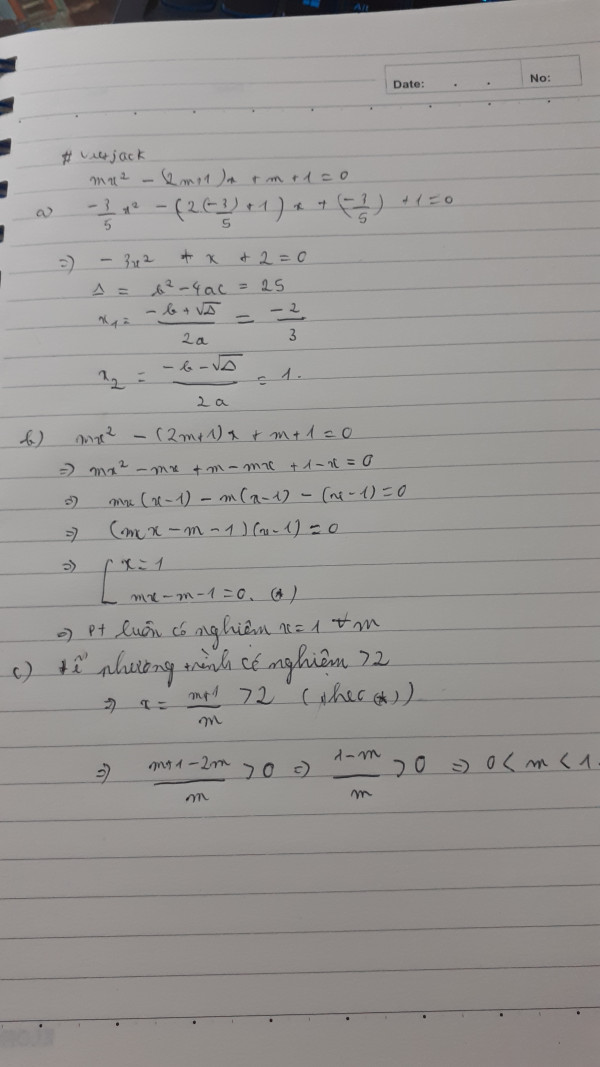 Alt
Date: . . No:
# vietjack
mx² - (2m+1)x + m + 1 = 0
a) -3/5 x² - (2(-3/5) + 1) x + (-3/5) + 1 = 0
=> - 3x² + x + 2 = 0
Δ = b² - 4ac = 25
x₁ = (-b + √Δ)/2a = -2/3
x₂ = (-b - √Δ)/2a = 1.
b) mx² - (2m+1)x + m + 1 = 0
=> mx² - mx + m - mx + 1 - x = 0
=> mx(x-1) - m(x-1) - (x-1) = 0
=> (mx - m - 1)(x-1) = 0
=> [ x = 1
mx - m - 1 = 0. (*)
=> Pt luôn có nghiệm x = 1 ∀m
c) Để phương trình có nghiệm > 2
=> x = (m+1)/m > 2 (theo (*))
=> (m+1-2m)/m > 0 => (1-m)/m > 0 => 0 < m < 1.